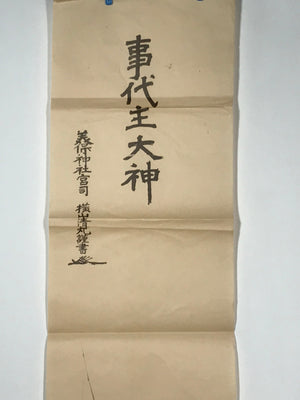 事代主大神
美保神社宮司 横山青丸謹書